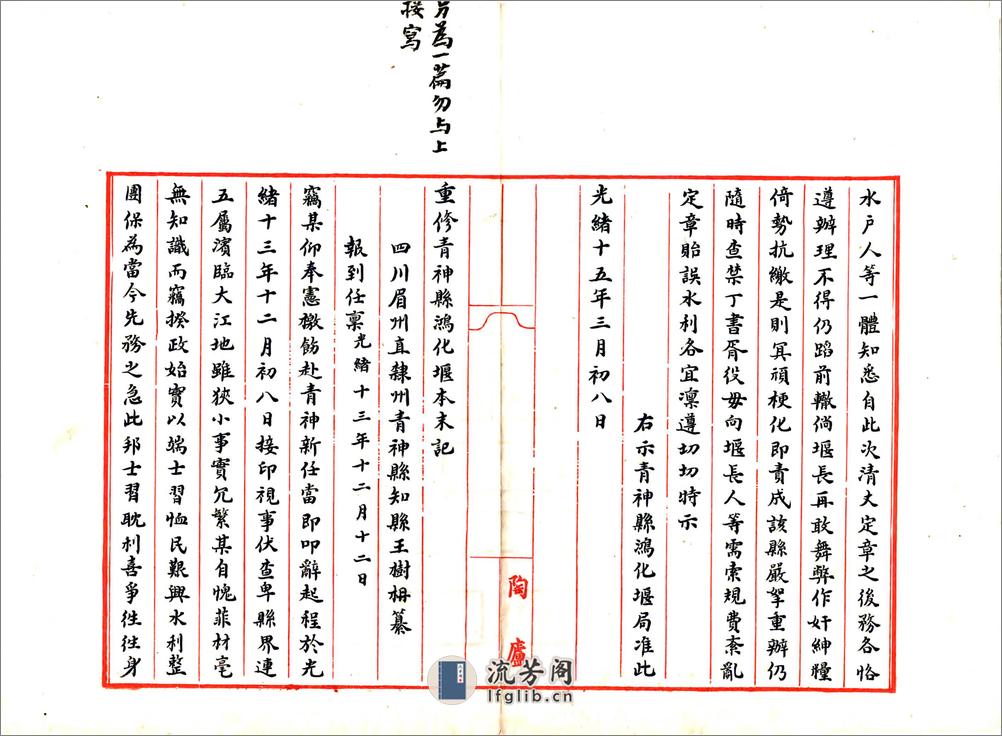 另為一篇勿与上
接寫
水户人等一體知悉自此次清丈定章之後務各恪
遵辦理不得仍蹈前轍倘堰長再敢舞弊作奸紳糧
倚勢抗繳是則冥頑梗化即責成該縣嚴拏重辦仍
隨時查禁丁書胥役毋向堰長人等需索規費紊亂
定章貽誤水利各宜凜遵切切特示
右示青神縣鴻化堰局准此
光緒十五年三月初八日
陶廬
重修青神縣鴻化堰本末記
四川眉州直隸州青神縣知縣王樹枏纂
報到任稟光緒十三年十二月十二日
竊某仰奉憲檄飭赴青神新任當即叩辭起程於光
緒十三年十二月初八日接印視事伏查卑縣界連
五屬濱臨大江地雖狹小事實冗繁某自愧菲材毫
無知識而竊揆政始實以端士習恤民艱興水利整
團保為當今先務之急此邦士習耽利喜爭徃徃身
流芳阁
lfglib.cn